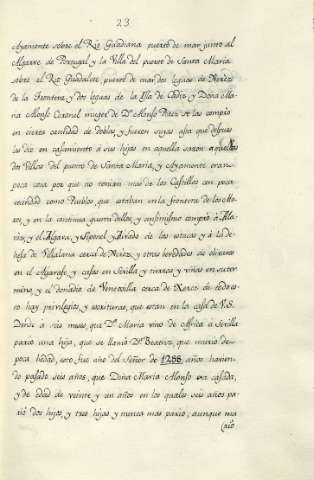 23
Ayamonte sobre el Rio Guadiana puerto de mar junto al
Algarve de Portugal y la Villa del puerto de Santa Maria
sobre el Rio Guadalete puerto de mar dos leguas de Xerez
de la frontera y dos leguas de la Isla de Cadiz y Doña Ma
ria Alonso Coronel muger de Dn. Alonso Perez se las compro
en cierta cantidad de doblas y fueron suyas asta que despues
las dio en casamiento a sus hijas en aquella sazon aquellas
dos Villas del puerto de Santa Maria, y Ayamonte eran
poca cosa por que no tenian mas de los Castillos con poca
vecindad como Pueblos que estaban en la frontera de los Mo
ros, y en la continua guerra dellos, y ansimismo compro a Ala
raz y el Algara, y y Alcada de las estacas y a la de
hesa de Villalana cerca de Xerez, y otras heredades de olivares
en el Axarafe, y casas en Sevilla y tierras y viñas en su ter
mino, y el donadio de Ventosilla cerca de Xerez de todo es
to hay privilegios, y escrituras que estan en la casa de V.S.
Desde a seis meses que Da. Maria vino de Affrica a Sevilla
pario una hija, que se llamó Da. Beatriz, que murio de
poca hedad, esto fue año del Señor de 1288 años havien
do pasado seis años, que Doña Maria Alonso era casada,
y de edad de veinte y un años en los quales seis años pa
rió dos hijos, y tres hijas y nunca mas pario, aunque ma